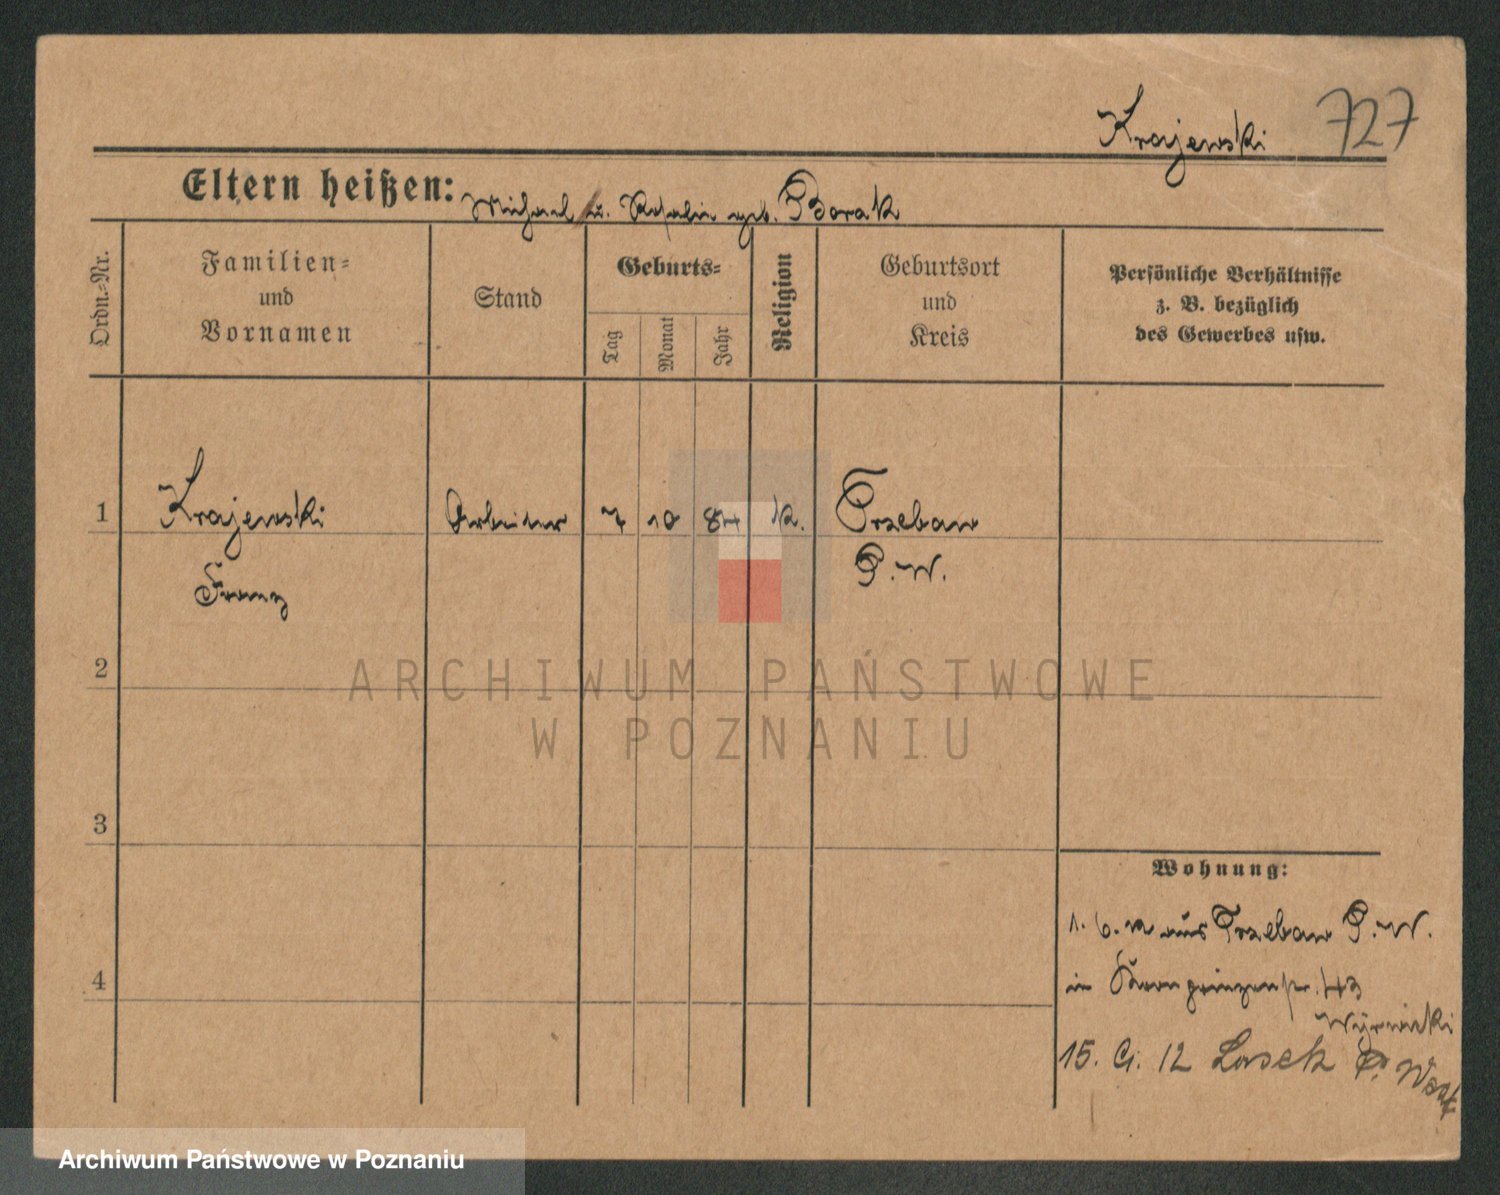 Krajewski 727
Eltern heißen: Michael u. Rosalie geb. Borak
Ordn.=Nr.
Familien=
und
Vornamen
Stand
Geburts=
Tag
Monat
Jahr
Religion
Geburtsort
und
Kreis
Persönliche Verhältnisse
z. B. bezüglich
des Gewerbes usw.
1 Krajewski Arbeiter 7 10 84 k. Trzebaw
Franz P. W.
2
3
4
ARCHIWUM PAŃSTWOWE
W POZNANIU
Wohnung:
1. 6. aus Trzebaw P. W.
in Kronprinzenstr. 43
15. 12 Lasek P. West
Archiwum Państwowe w Poznaniu